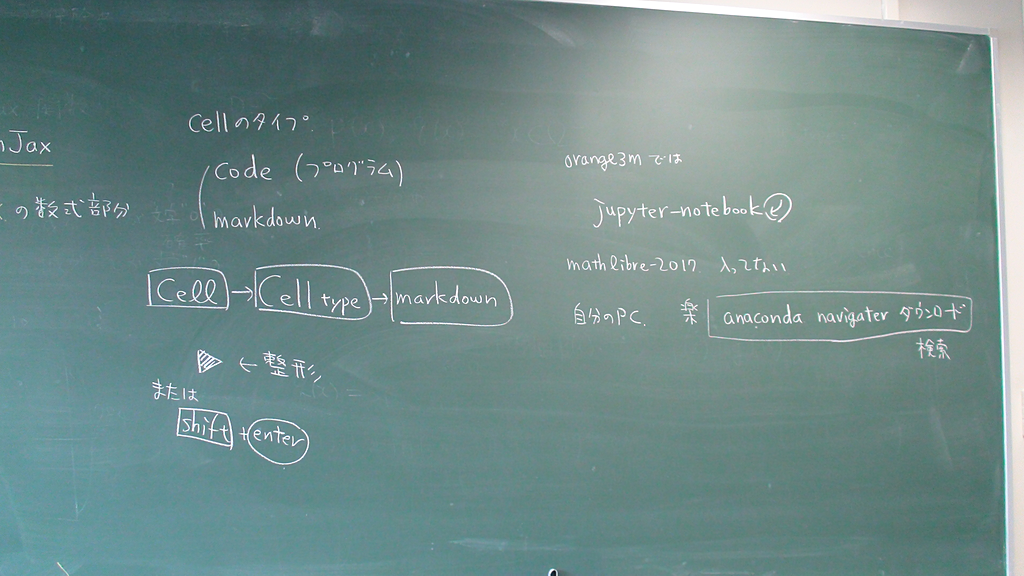 Jax
の数式部分
Cellのタイプ
code (プログラム)
markdown
Cell → Cell type → markdown
← 整形
または
shift + enter
orange3mでは
jupyter-notebook
mathlibre-2017 入ってない
自分のPC. 楽 anaconda navigater ダウンロード
検索